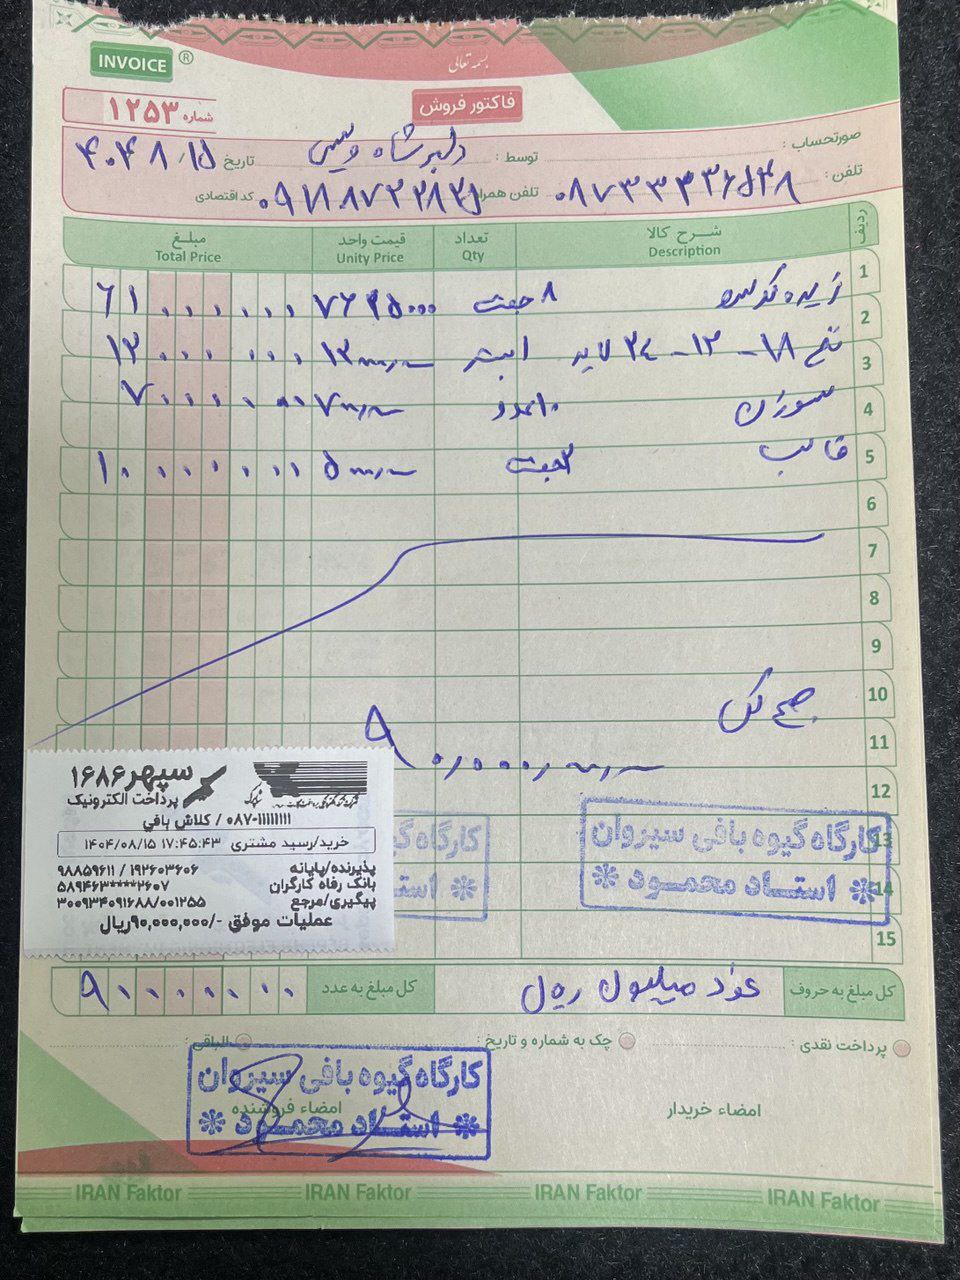 بسمه تعالی
INVOICE ®
فاکتور فروش
شماره ۱۲۵۳
صورتحساب :
توسط : دلبر شاه ویسی
تاریخ ۴۰۴ ۸/ ۱۵
تلفن : ۰۸۷۳۳۳۳۶۵۴۸
تلفن همراه
کد اقتصادی
ردیف
شرح کالا Description
تعداد Qty
قیمت واحد Unity Price
مبلغ Total Price
1 ۸ جفت ۷۶۲۵۰۰۰ ۶۱۰۰۰۰۰۰
2 نخ ۱۸ - ۱۲ - ۲۴ لاید ۱۳۰۰۰۰۰۰
3 سوزن ۱۰ عدد ۷۰۰۰۰۰۰
4 قالب ۲ جفت ۱۰۰۰۰۰۰۰
5
6
7
8
9
10
جمع کل
11
12
13
14
15
کارگاه گیوه بافی سیروان
❊ استاد محمود ❊
سپهر ۱۶۸۶
پرداخت الکترونیک
۰۸۷-۱۱۱۱۱۱۱۱ / کلاش بافی
خرید/رسید مشتری ۱۷:۴۵:۴۳ ۱۴۰۴/۰۸/۱۵
پذیرنده/پایانه ۱۹۲۶۰۳۶۰۶ / ۹۸۸۵۹۶۱۱
بانک رفاه کارگران ۵۸۹۴۶۳****۲۶۰۷
پیگیری/مرجع ۳۰۰۹۳۴۰۹۱۶۸۸/۰۰۱۲۵۵
عملیات موفق -/۹۰,۰۰۰,۰۰۰ریال
کل مبلغ به حروف نود میلیون ریال
کل مبلغ به عدد ۹۰۰۰۰۰۰۰
پرداخت نقدی :
چک به شماره و تاریخ :
الباقی :
امضاء خریدار
امضاء فروشنده
کارگاه گیوه بافی سیروان
❊ استاد محمود ❊
IRAN Faktor IRAN Faktor IRAN Faktor IRAN Faktor